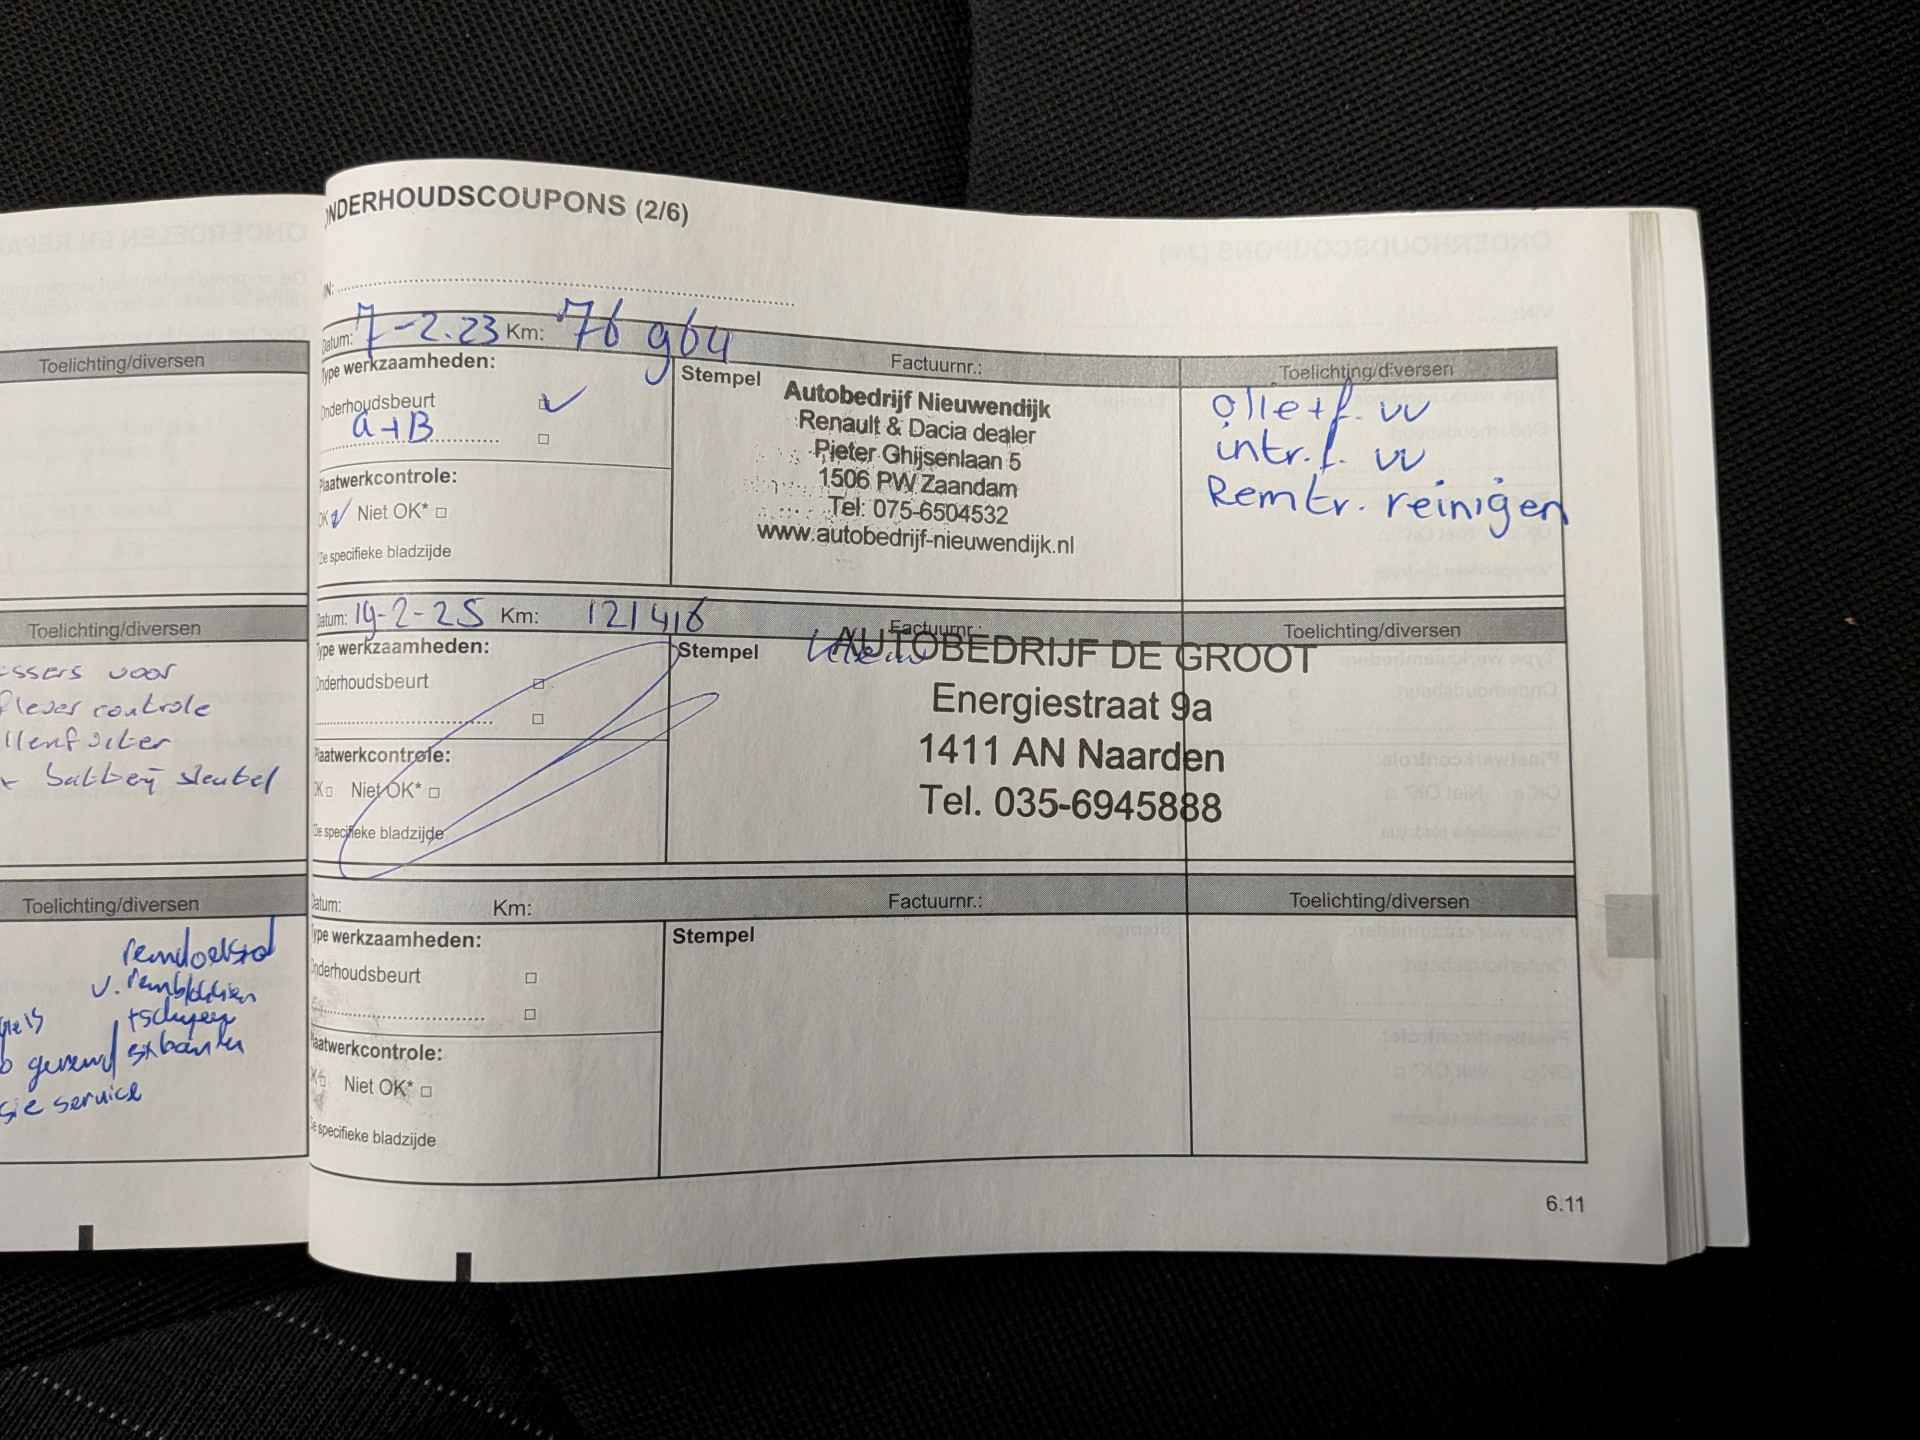 Toelichting/diversen
Toelichting/diversen
ssers voor
flever controle
batterij sleutel
Toelichting/diversen
v. remblokken
service
NDERHOUDSCOUPONS (2/6)
IN:
Datum: 7-2.23 Km: 76 964
Factuurnr.:
Toelichting/diversen
Type werkzaamheden:
Onderhoudsbeurt
a+B
Plaatwerkcontrole:
OK Niet OK*
Zie specifieke bladzijde
Stempel
Autobedrijf Nieuwendijk
Renault & Dacia dealer
Pieter Ghijsenlaan 5
1506 PW Zaandam
Tel: 075-6504532
www.autobedrijf-nieuwendijk.nl
olie+f. vv
intr.f. vv
Remtr. reinigen
Datum: 19-2-25 Km: 121416
Factuurnr.:
Toelichting/diversen
Type werkzaamheden:
Onderhoudsbeurt
Plaatwerkcontrole:
OK Niet OK*
Zie specifieke bladzijde
Stempel
Klein
AUTOBEDRIJF DE GROOT
Energiestraat 9a
1411 AN Naarden
Tel. 035-6945888
Datum: Km:
Factuurnr.:
Toelichting/diversen
Type werkzaamheden:
Onderhoudsbeurt
Plaatwerkcontrole:
OK Niet OK*
Zie specifieke bladzijde
Stempel
6.11